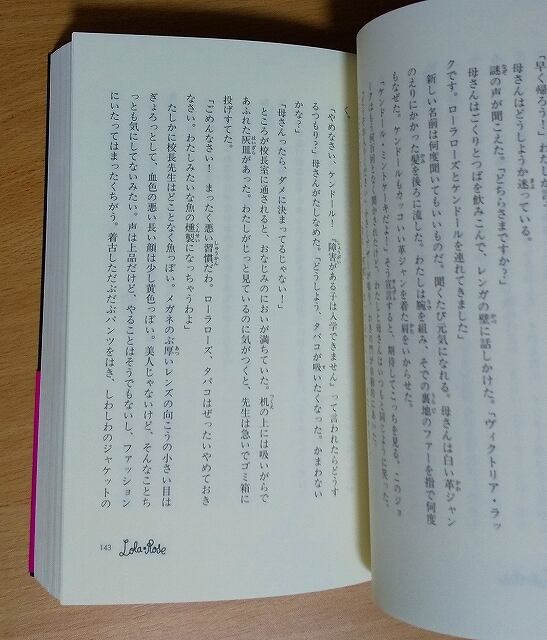 「早く帰ろう！」
母さんはどうしようか迷っている。
謎の声が聞こえた。「どちらさまですか？」
母さんはごくりとつばを飲みこんで、レンガの壁に話しかけた。「ヴィクトリア・ラッ
クです。ローラローズとケンドールを連れてきました」
新しい名前は何度聞いてもいいものだ。聞くたび元気になれる。母さんは白い革ジャン
のえりにかかった髪を後ろに流した。わたしは腕を組み、そでの裏地のファーを指で何度
もなぜた。ケンドールもカッコいい革ジャンを着た肩をいからせた。
「ケンドール・ミントケーキだよ！」そう宣言すると、期待してこっちを見る。このジョ
く。
「やめなさい、ケンドール！『障害がある子は入学できません』って言われたらどうす
るつもり？」母さんがたしなめた。「どうしよう、タバコが吸いたくなった。かまわない
かな？」
「母さんったら、ダメに決まってるじゃない！」
ところが校長室に通されると、おなじみのにおいが満ちていた。机の上には吸いがらで
あふれた灰皿があった。わたしがじっと見ているのに気がつくと、先生は急いでゴミ箱に
投げすてた。
「ごめんなさい！　まったく悪い習慣だわ。ローラローズ、タバコはぜったいやめておき
なさい。わたしみたいな魚の燻製になっちゃうわよ」
たしかに校長先生はどことなく魚っぽい。メガネのぶ厚いレンズの向こうの小さい目は
ぎょろっとして、血色の悪い長い顔は少し黄色っぽい。美人じゃないけど、そんなことち
っとも気にしてないみたい。声は上品だけど、やることはそうでもないし、ファッション
にいたってはまったくちがう。着古しただぶだぶパンツをはき、しわしわのジャケットの
143 Lola Rose